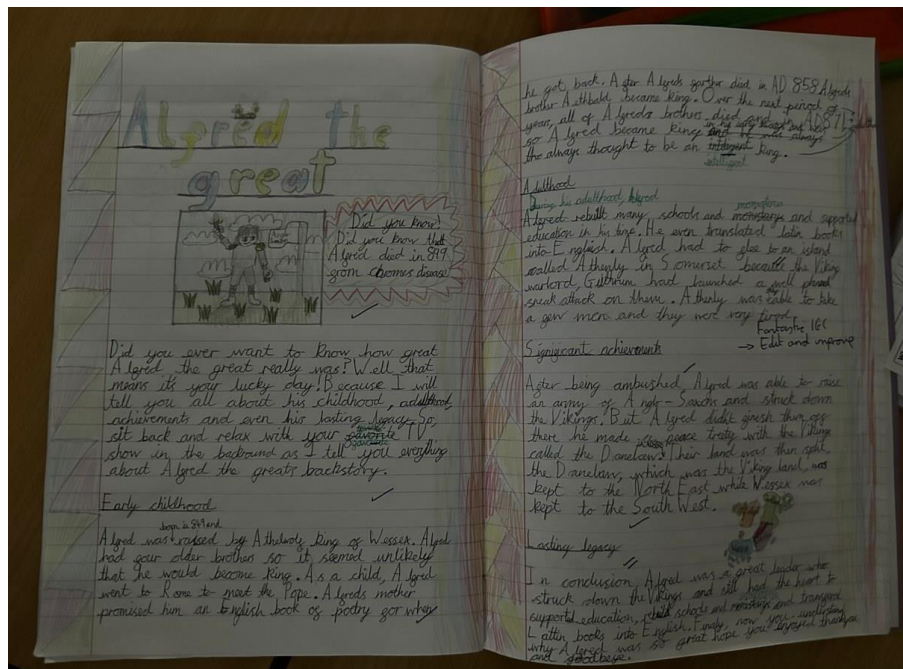 Alfred the
great
Did you know!
Did you know that
Alfred died in 899
from chornes disease
Did you ever want to know how great
Alfred, the great really was? Well that
means it's your lucky day! Because I will
tell you all about his childhood, adulthood,
achievements and even his lasting legacy. So,
sit back and relax with your favourite TV
show in the backround as I tell you everything
about Alfred the great's backstory.
Early childhood
born in 849 and
Alfred was raised by Athelwolf King of Wessex. Alfred
had four older brothers so it seemed unlikely
that he would become King. As a child, Alfred
went to Rome to meet the Pope. Alfreds mother
promised him an English book of poetry for when
he got back. After Alfreds farther died in AD 858 Alfreds
brother Aethbald became King. Over the next period of
years, all of Alfreds brothers died AD871
so Alfred became king
the always thought to be an king.
intelligent
Adulthood
During his adulthood, Alfred
Alfred rebuilt many schools and and supported
education in his time. He even translated latin books
into English. Alfred had to flee to an island
called Athenly in Somerset because the Viking
warlord, Guthrum had launched a well planned
sneak attack on them. Athenly was able to take
a few men and they were very tired.
Fantastic IGC
→ Edit and improve
Significant achievements
After being ambushed, Alfred was able to raise
an army of Anglo-Saxons and struck down
the Vikings. But Alfred didn't finesh them off
there he made peace treaty with the Vikings
called the Danelaw. Their land was then split,
the Danelaw, which was the Viking land, was
kept to the North East while Wessex was
kept to the South West.
Lasting legacy
In conclusion, Alfred was a great leader who
struck down the Vikings and still had the heart to
support education, rebuild schools and and
Lattin books into English. Finaly, now you understand
why Alfred was so great hope you enjoyed thankyou
and goodbeye.